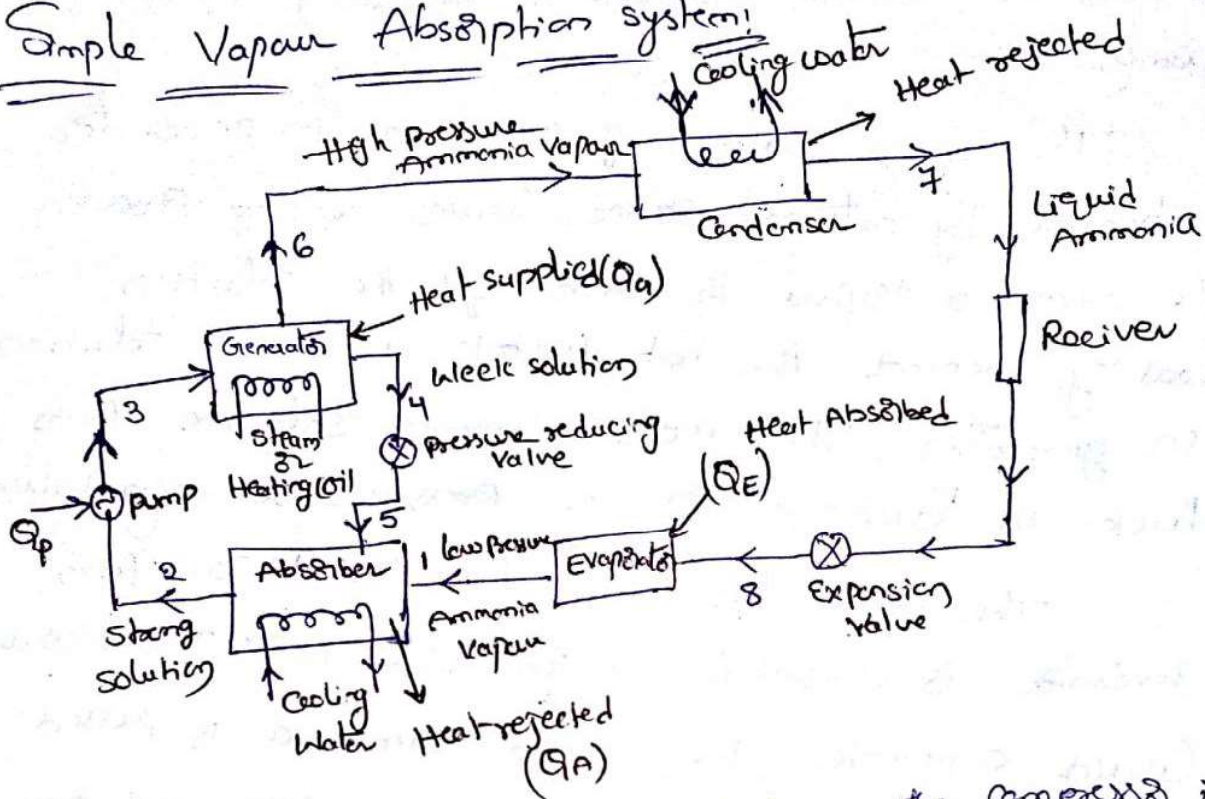 Simple Vapour Absorption system:
Cooling water
Heat rejected
High pressure
Ammonia vapour
Condenser
7
Liquid
Ammonia
Reciver
6
Heat supplied (QG)
Generator
Steam
or
Heating coil
3
Week solution
4
pressure reducing
valve
Heat Absorbed
(QE)
pump
Qp
5
Absorber
1
low pressure
Ammonia
vapour
Evaporator
8
Expansion
valve
2
Strong
solution
Cooling
Water
Heat rejected
(QA)